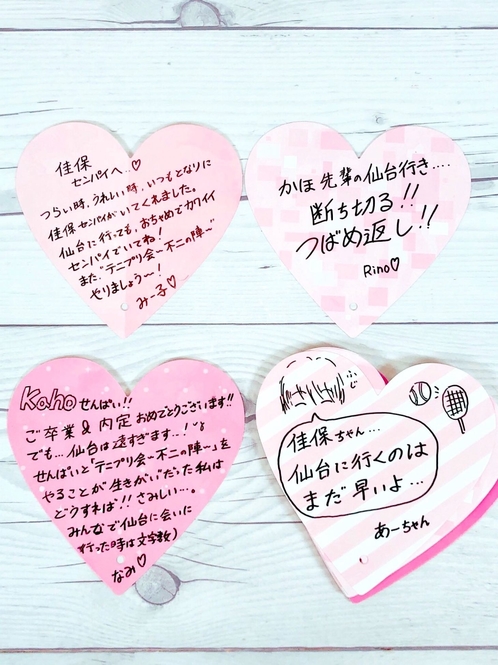 佳保
センパイへ…♡
つらい時、うれしい時、いつもとなりに
佳保センパイがいてくれました。
仙台に行っても、おちゃめでカワイイ
センパイでいてね!
また、"テニプリ会~不二の陣~"
やりましょう~!
みー子♡
かほ先輩の仙台行き....
断ち切る!!
つばめ返し!!
Rino♡
Kahoせんぱい!!
ご卒業&内定おめでとうございます!!
でも…仙台は遠すぎます…!
せんぱいと「テニプリ会~不二の陣~」を
やることが生きがいだった私は
どうすれば!!さみしい…。
みんなで仙台に会いに
行った時は
なみ♡
ふじ
佳保ちゃん…
仙台に行くのは
まだ早いよ…
あーちゃん